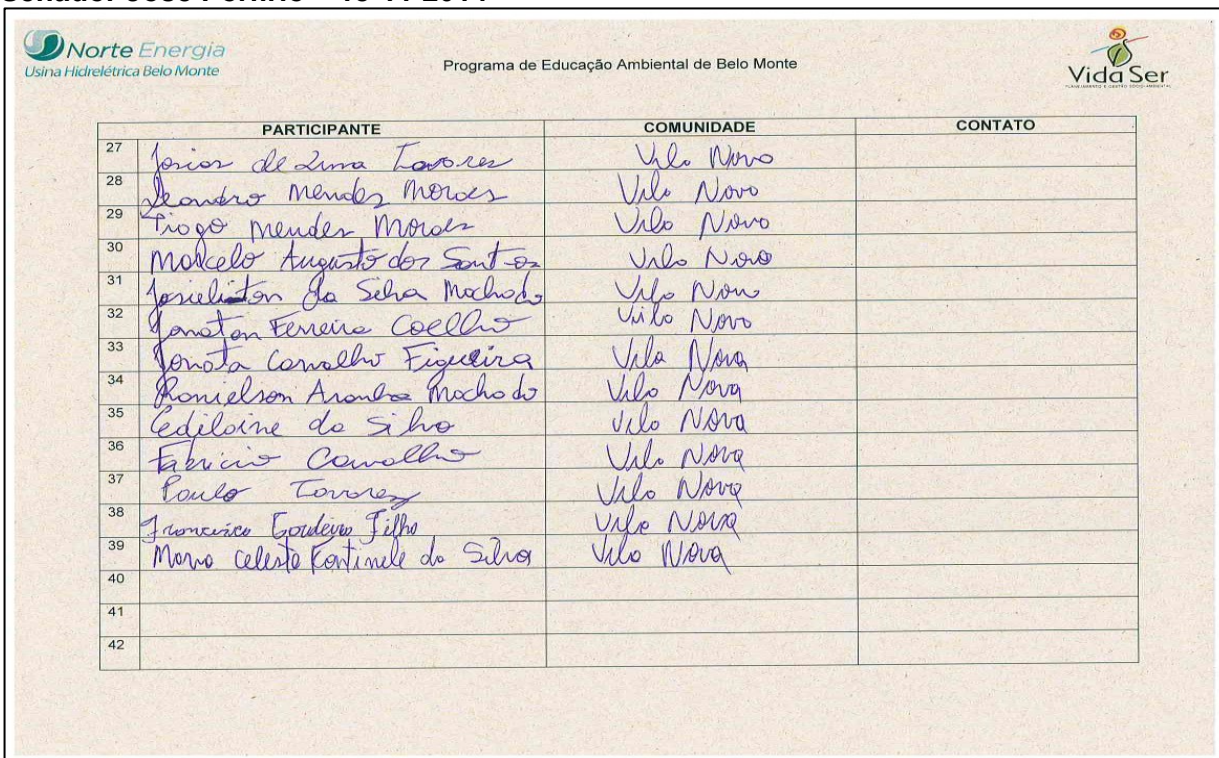 Norte Energia
Usina Hidrelétrica Belo Monte
Programa de Educação Ambiental de Belo Monte
Vida Ser
PARTICIPANTE COMUNIDADE CONTATO
27 Josias de Lima Tavares Vila Nova
28 Leandro Mendes Moraes Vila Nova
29 Tiago Mendes Moraes Vila Nova
30 Marcelo Augusto dos Santos Vila Nova
31 da Silva Machado Vila Nova
32 Jonatan Ferreira Coelho Vila Nova
33 Jonata Carvalho Figueira Vila Nova
34 Ronielson Aranha Machado Vila Nova
35 da Silva Vila Nova
36 Fabricio Carvalho Vila Nova
37 Paulo Tavares Vila Nova
38 Francisco Filho Vila Nova
39 Maria Celeste do Silva Vila Nova
40
41
42